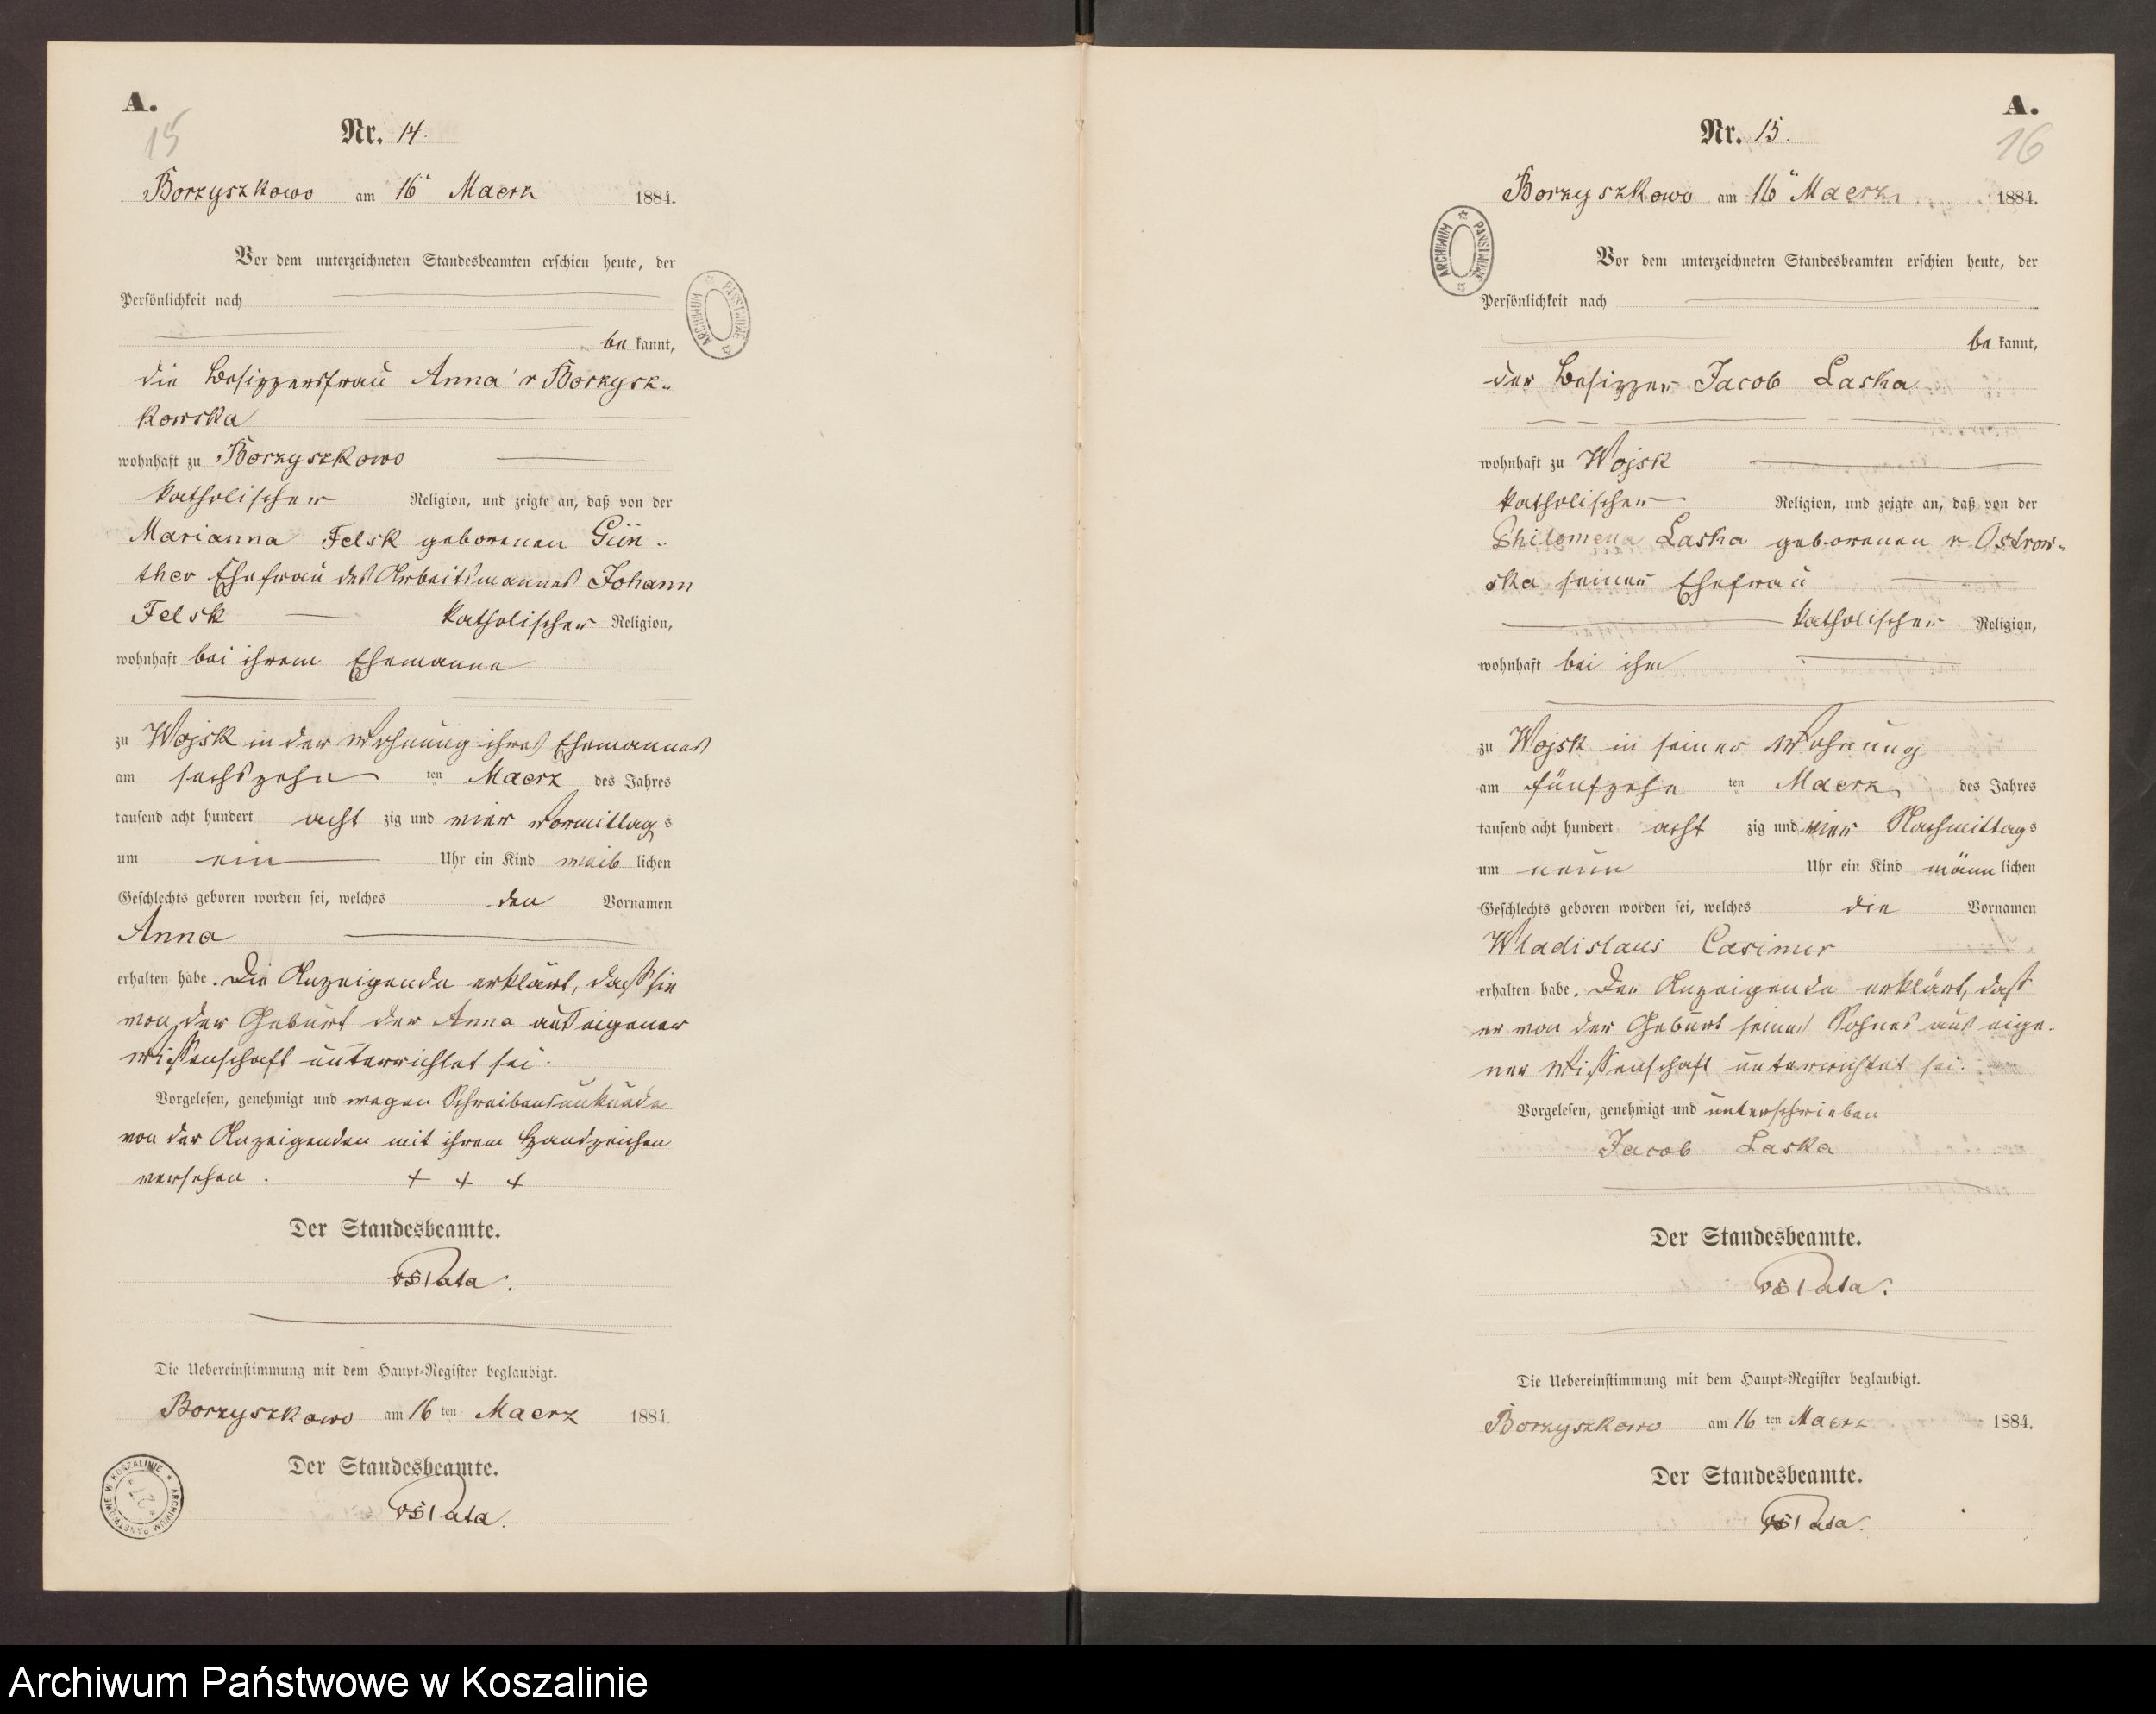 A.
15
Nr. 14.
Borzyszkowo am 16" Maerz 1884.
Vor dem unterzeichneten Standesbeamten erschien heute, der
Persönlichkeit nach
be kannt,
die Besitzersfrau Anna v Borzysz-
kowska
wohnhaft zu Borzyszkowo
katholischer Religion, und zeigte an, daß von der
Marianna Felsk geborenen Gün-
ther Ehefrau des Arbeitsmannes Johann
Felsk katholischer Religion,
wohnhaft bei ihrem Ehemanne
zu Wojsk in der Wohnung ihres Ehemannes
am sechszehn ten Maerz des Jahres
tausend acht hundert acht zig und vier Vormittags
um ein Uhr ein Kind weib lichen
Geschlechts geboren worden sei, welches den Vornamen
Anna
erhalten habe. Die Anzeigende erklärt, daß sie
von der Geburt der Anna aus eigener
Wissenschaft unterrichtet sei.
Vorgelesen, genehmigt und wegen Schreibensunkunde
von der Anzeigenden mit ihrem Handzeichen
versehen. + + +
Der Standesbeamte.
Die Uebereinstimmung mit dem Haupt-Register beglaubigt.
Borzyszkowo am 16 ten Maerz 1884.
Der Standesbeamte.
ARCHIWUM PAŃSTWOWE
ARCHIWUM PAŃSTWOWE W KOSZALINIE
A.
16
Nr. 15.
Borzyszkowo am 16" Maerz 1884.
Vor dem unterzeichneten Standesbeamten erschien heute, der
Persönlichkeit nach
be kannt,
der Besitzer Jacob Laska
wohnhaft zu Wojsk
katholischer Religion, und zeigte an, daß von der
Philomena Laska geborenen v Ostrow-
ska seiner Ehefrau
katholischer Religion,
wohnhaft bei ihm
zu Wojsk in seiner Wohnung
am fünfzehn ten Maerz des Jahres
tausend acht hundert acht zig und vier Nachmittags
um neun Uhr ein Kind männ lichen
Geschlechts geboren worden sei, welches die Vornamen
Wladislaus Casimir
erhalten habe. Der Anzeigende erklärt, daß
er von der Geburt seines Sohnes aus eige-
ner Wissenschaft unterrichtet sei.
Vorgelesen, genehmigt und unterschrieben
Jacob Laska
Der Standesbeamte.
Die Uebereinstimmung mit dem Haupt-Register beglaubigt.
Borzyszkowo am 16 ten Maerz 1884.
Der Standesbeamte.
ARCHIWUM PAŃSTWOWE
Archiwum Państwowe w Koszalinie